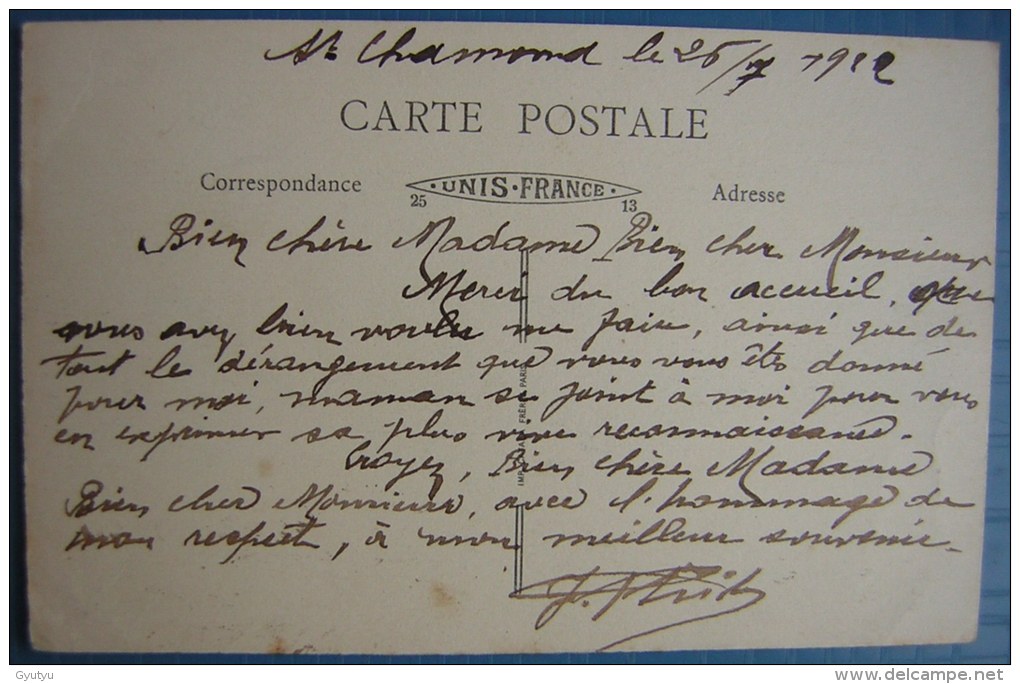 St Chamond le 26/7 1922
CARTE POSTALE
Correspondance
25 UNIS-FRANCE 13
Adresse
Bien chère Madame Bien cher Monsieur
Merci du bon accueil, que
vous avez bien voulu me faire, ainsi que de
tout le dérangement que vous vous êtes donné
pour moi, maman se joint à moi pour vous
en exprimer sa plus vive reconnaissance.
Croyez, Bien chère Madame
Bien cher Monsieur, avec l'hommage de
mon respect, à mon meilleur souvenir.
Gyutyu
www.delcampe.net